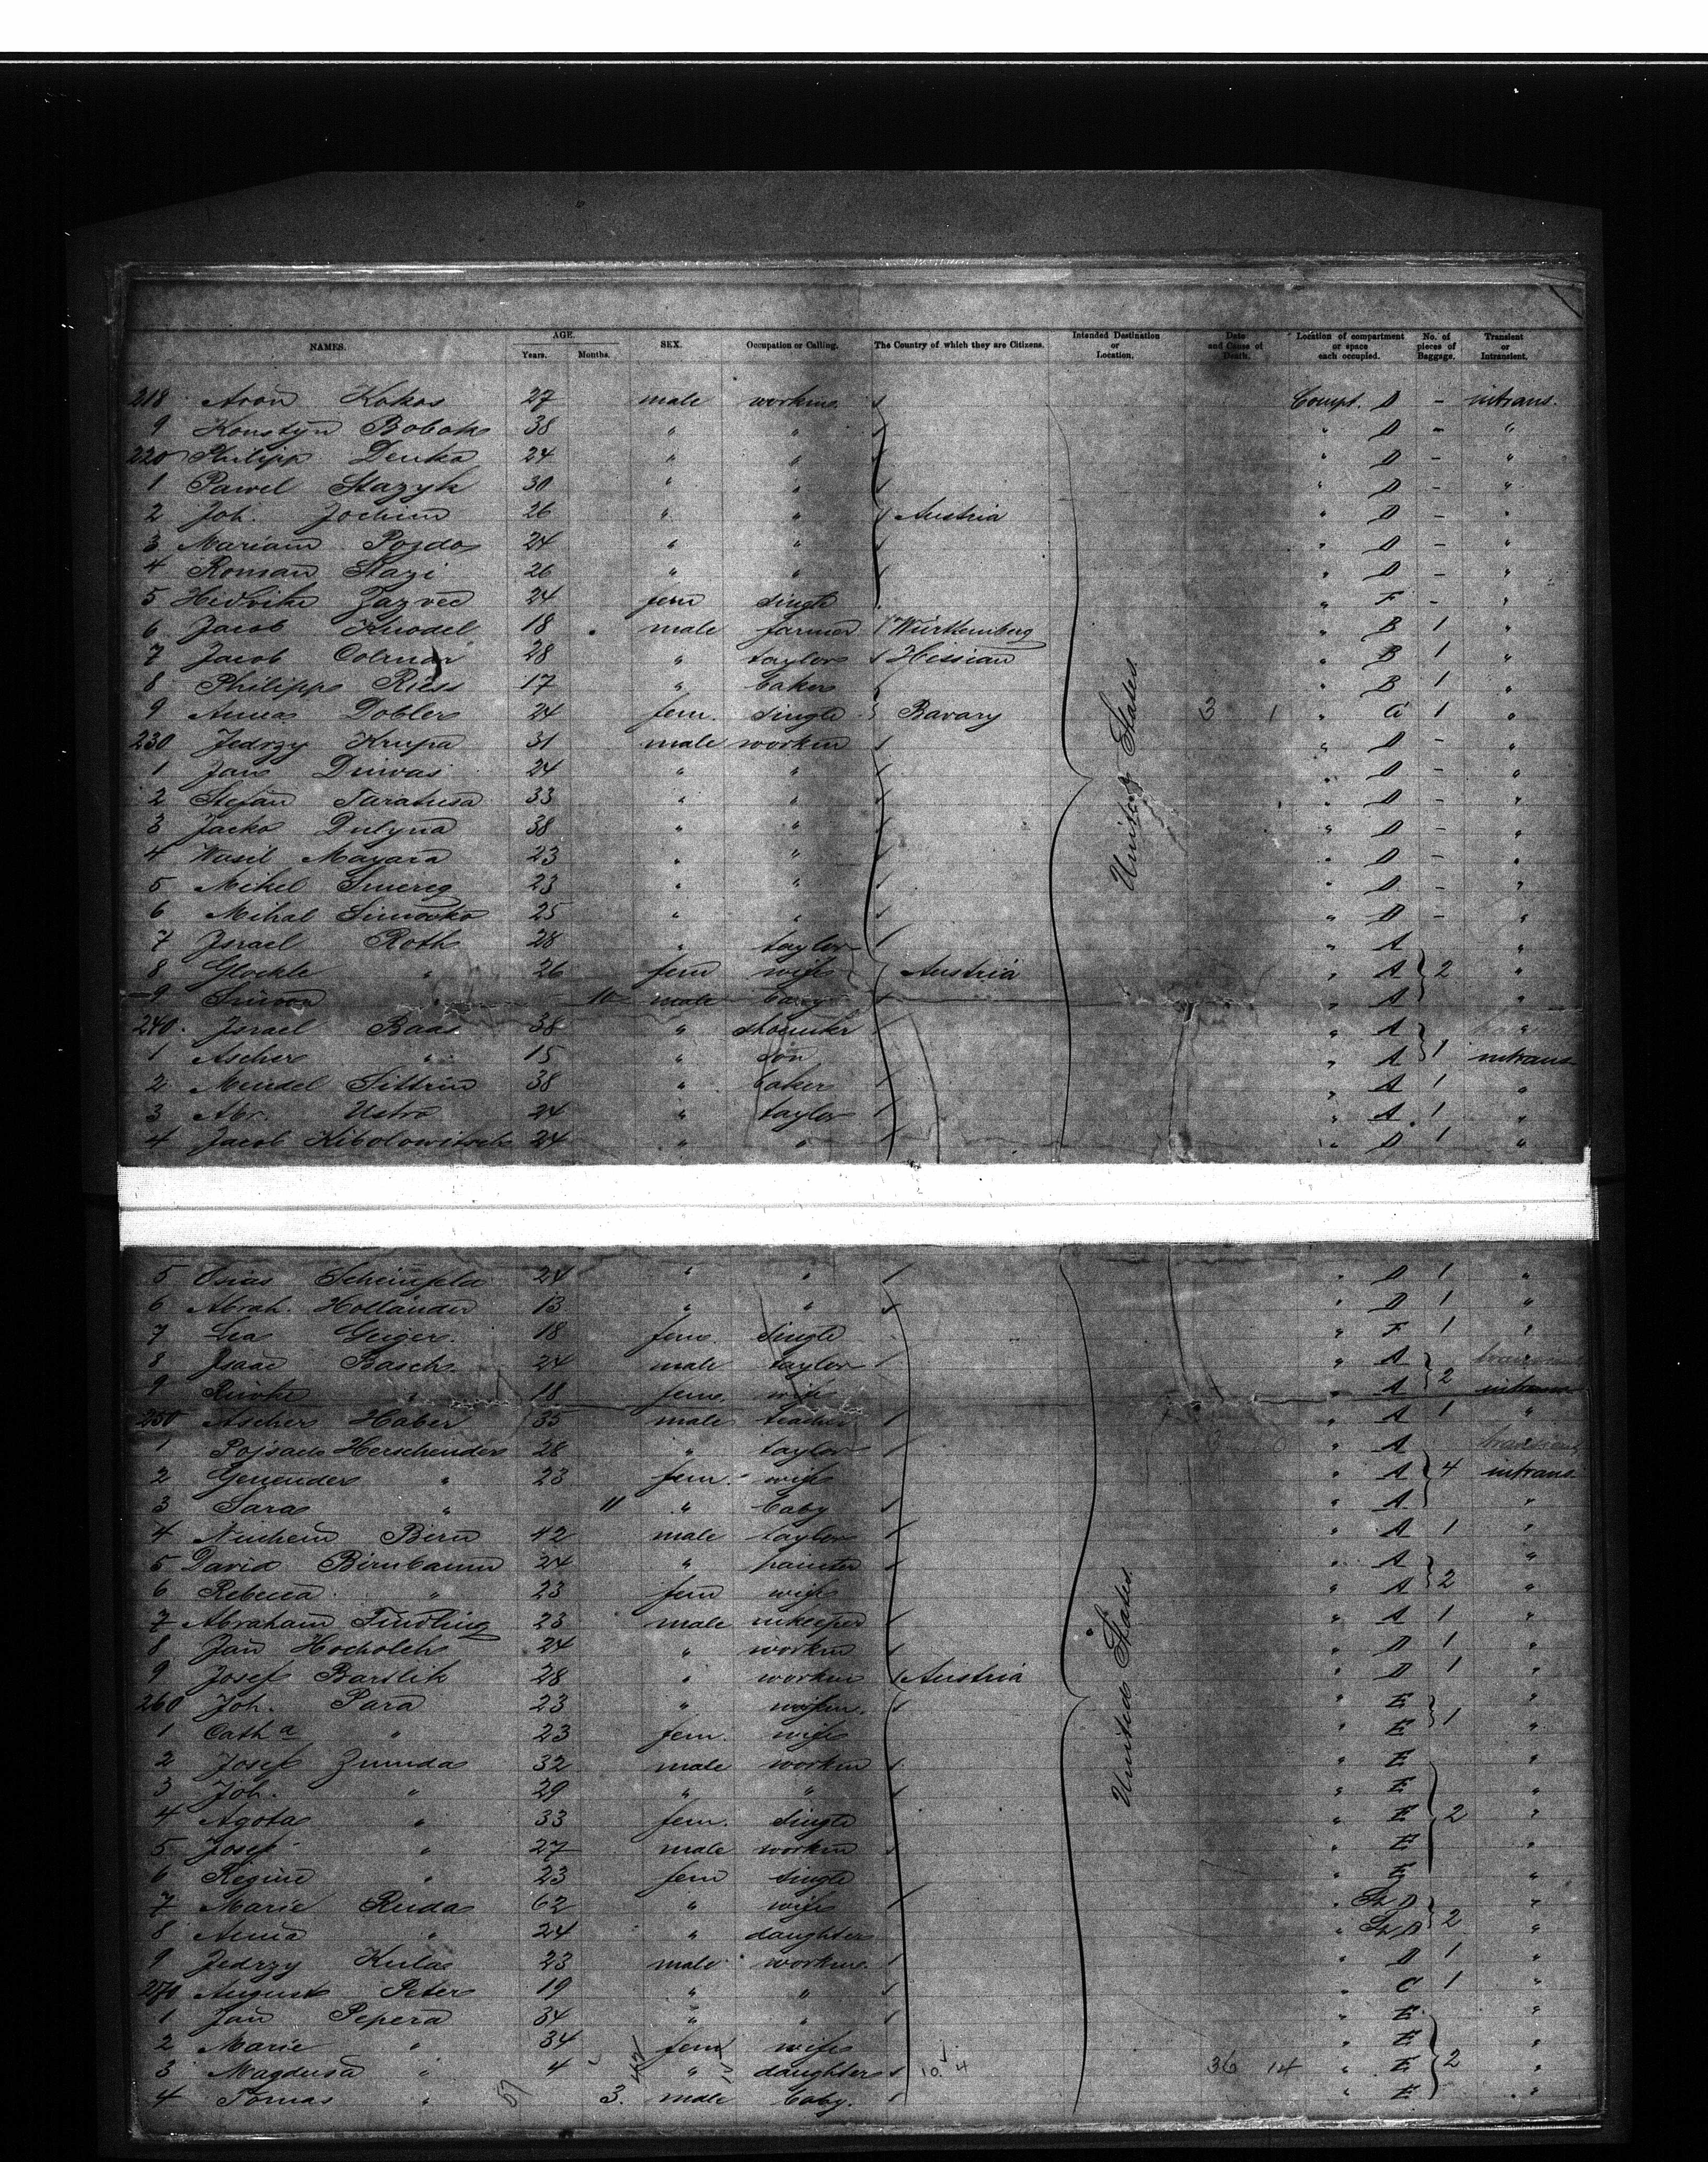 NAMES. AGE. Years. Months. SEX. Occupation or Calling. The Country of which they are Citizens. Intended Destination or Location. Date and Cause of Death. Location of compartment or space each occupied. No. of pieces of Baggage. Transient or Intransient.
218 Aron Kokos 27 male workm. Compt. D - intrans.
9 Konstyn Boboh 38 " " " D - "
220 Philipp Denka 24 " " " D - "
1 Pawel Stazyk 30 " " " D - "
2 Joh. Jochim 26 " " Austria " D - "
3 Mariam Pozdo 24 " " " D - "
4 Roman Stazi 26 " " " D - "
5 Hedvike Zazvec 24 fem single " F - "
6 Jacob Knodel 18 male farmer Württemberg " B 1 "
7 Jacob Colmar 28 " taylor Hessian " B 1 "
8 Philipp Riess 17 " baker " B 1 "
9 Anna Dobler 24 fem. single Bavary 3 1 " G 1 "
230 Jedrzy Krupa 31 male workm " D - "
1 Jan Duwai 24 " " " D - "
2 Stefan Taratusa 33 " " " D - "
3 Jacko Dulyna 38 " " " D - "
4 Wasil Mayara 23 " " " D - "
5 Mikel Smereg 23 " " " D - "
6 Mihal Simocko 25 " " " D - "
7 Israel Roth 28 " taylor " A "
8 Glockle " 26 fem wife Austria " A 2 "
9 Simon " 10 male baby " A "
240. Israel Baas 38 " shoemker " A "
1 Ascher " 15 " son " A 1 intrans
2 Mendel Sittrin 38 " baker " A 1 "
3 Abr. Ustro 24 " taylor " A 1 "
4 Jacob Kibolowitsch 24 " " " D 1 "
United States
5 Osias Scheinfeld 24 " " " D 1 "
6 Abrah. Holländer 13 " " " D 1 "
7 Lea Geiger. 18 fem. single " F 1 "
8 Isaac Basch. 24 male taylor " A
9 Riwke " 18 fem. wife " A 2 intrans
250 Ascher Haber 35 male teacher " A 1 "
1 Pojsach Herschender 28 " taylor " A
2 Genender " 23 fem. wife " A 4 intrans
3 Sara " 11 " baby " A "
4 Nuchem Bern 42 male taylor " A 1 "
5 David Birnbaum 24 " painter " A "
6 Rebecca " 23 fem wife " A 2 "
7 Abraham Findling 23 male inkeeper " A 1 "
8 Jan Hocholch 24 " workm " D 1 "
9 Josef Barslik 28 " workm Austria " D 1 "
260 Joh. Para 23 " " E "
1 Cath a " 23 fem. wife " E 1 "
2 Josef Zmuda 32 male workm " E "
3 Joh. " 29 " " " E "
4 Agota " 33 fem. single " E 2 "
5 Josef " 27 male workm " E "
6 Regine " 23 fem single " E "
7 Marie Ruda 62 " wife "
8 Anna " 24 " daughter " 2 "
9 Jedrzy Kula 23 male workm. " D 1 "
270 August Peter 19 " " " C 1 "
1 Jan Pepera 34 " " " E "
2 Marie " 34 fem wife " E "
3 Magdusa " 4 " daughter 10. 4 36 14 " E 2 "
4 Tomas " 3. male baby. " E "
United States.